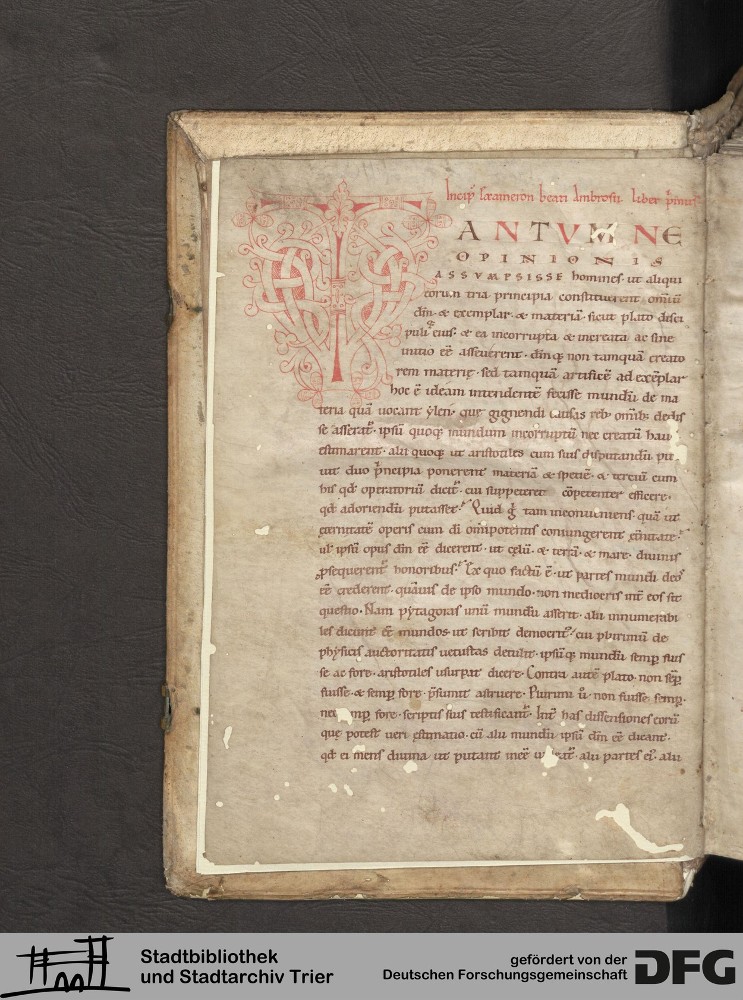 Incip̅ Exameron beati Ambrosii liber p̅mus
TANTUMNE
OPINIONIS
ASSUMPSISSE homines· ut aliqui
eorum tria principia constituerent omiu̅
dm̅· & exemplar· & materia̅· sicut plato disci
puliq; eius· & ea incorrupta & increata ac sine
initio ee̅ asseuerent· dm̅q; non tamqua̅ creato
rem materię· sed tamqua̅ artifice̅ ad exe̅plar
hoc e̅ ideam intendente̅ fecisse mundu̅ de ma
teria qua̅ uocant ẏlen· que gignendi causas reb; omib; dedis
se asserat̅· ipsu̅ quoq; mundum incorruptu̅ nec creatu̅ hau
estimarent· alii quoq; ut aristotiles cum suis disputandu̅ pu
tant duo p̅ncipia ponerent materia̅ & specie̅· & terciu̅ cum
his qd̅ operatoriu̅ dicit̅· cui suppeteret co̅petenter efficere·
qd̅ adoriendu̅ putasset· Quid g̅ tam inconueniens· qua̅ ut
ęternitate̅ operis cum di̅ omipotentis coniungerent ęt̅nitate·
ul̅ ipsu̅ opus dm̅ ee̅ dicerent· ut cęlu̅· & terra̅· & mare· diuinis
p̲sequerent̅ honoribus· Ex quo factu̅ e̅· ut partes mundi deos
ee̅ crederent· qua̅uis de ipso mundo· non mediocris int̅ eos sit
questio· Nam pẏtagoras unu̅ mundu̅ asserit· alii innumerabi
les dicunt ee̅ mundos· ut scribit democrit;· cui plurimu̅ de
phẏsicis auctoritatis uetustas detulit· ipsu̅q; mundu̅ semp̲ fuis
se ac fore· aristotiles usurpat dicere· Contra aute̅ plato· non sep̅
fuisse· & semp̲ fore· p̅sumit astruere· Plurimi u̅· non fuisse semp̲·
nec semp̲ fore· scriptis suis testificant̅· Int̅ has dissensiones eoru̅
que potest ueri estimatio· cu̅ alii mundu̅ ipsu̅ dm̅ ee̅ dicant·
qd̅ ei mens diuina ut putant inee̅ uideat̅· alii partes ei;· alii
Stadtbibliothek
und Stadtarchiv Trier
gefördert von der
Deutschen Forschungsgemeinschaft
DFG